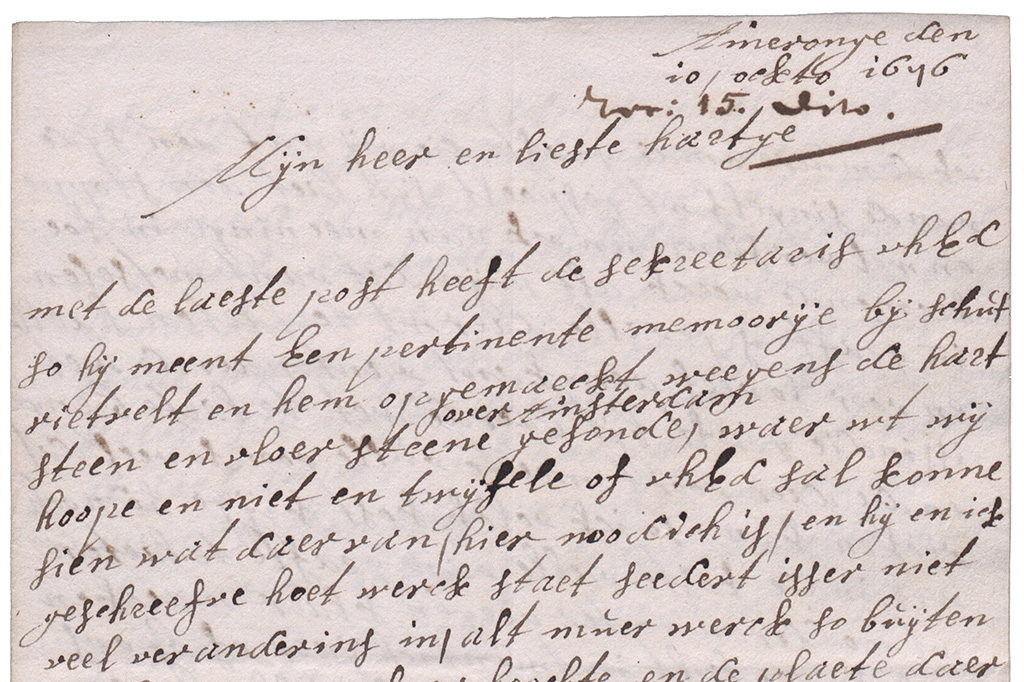 Ameronge den
10/ ockto 1676
Rec: 15. dito.
Mijn heer en lieste hartye
met de laeste post heeft de sekreetaris uhEd
so hij meent Een pertinente memoorije bij schut
rietvelt en hem opgemaeckt weegens de hart
over Amsterdam
steen en vloer steene gesonde, waer wt wij
hoope en niet en twijfele of uhEd sal konne
sien wat daer van/ hier noodich is/ en hij en ick
geschreefve hoet werck staet seedert isser niet
veel veranderins in/ alt muer werck so buijten
en de plaete daer